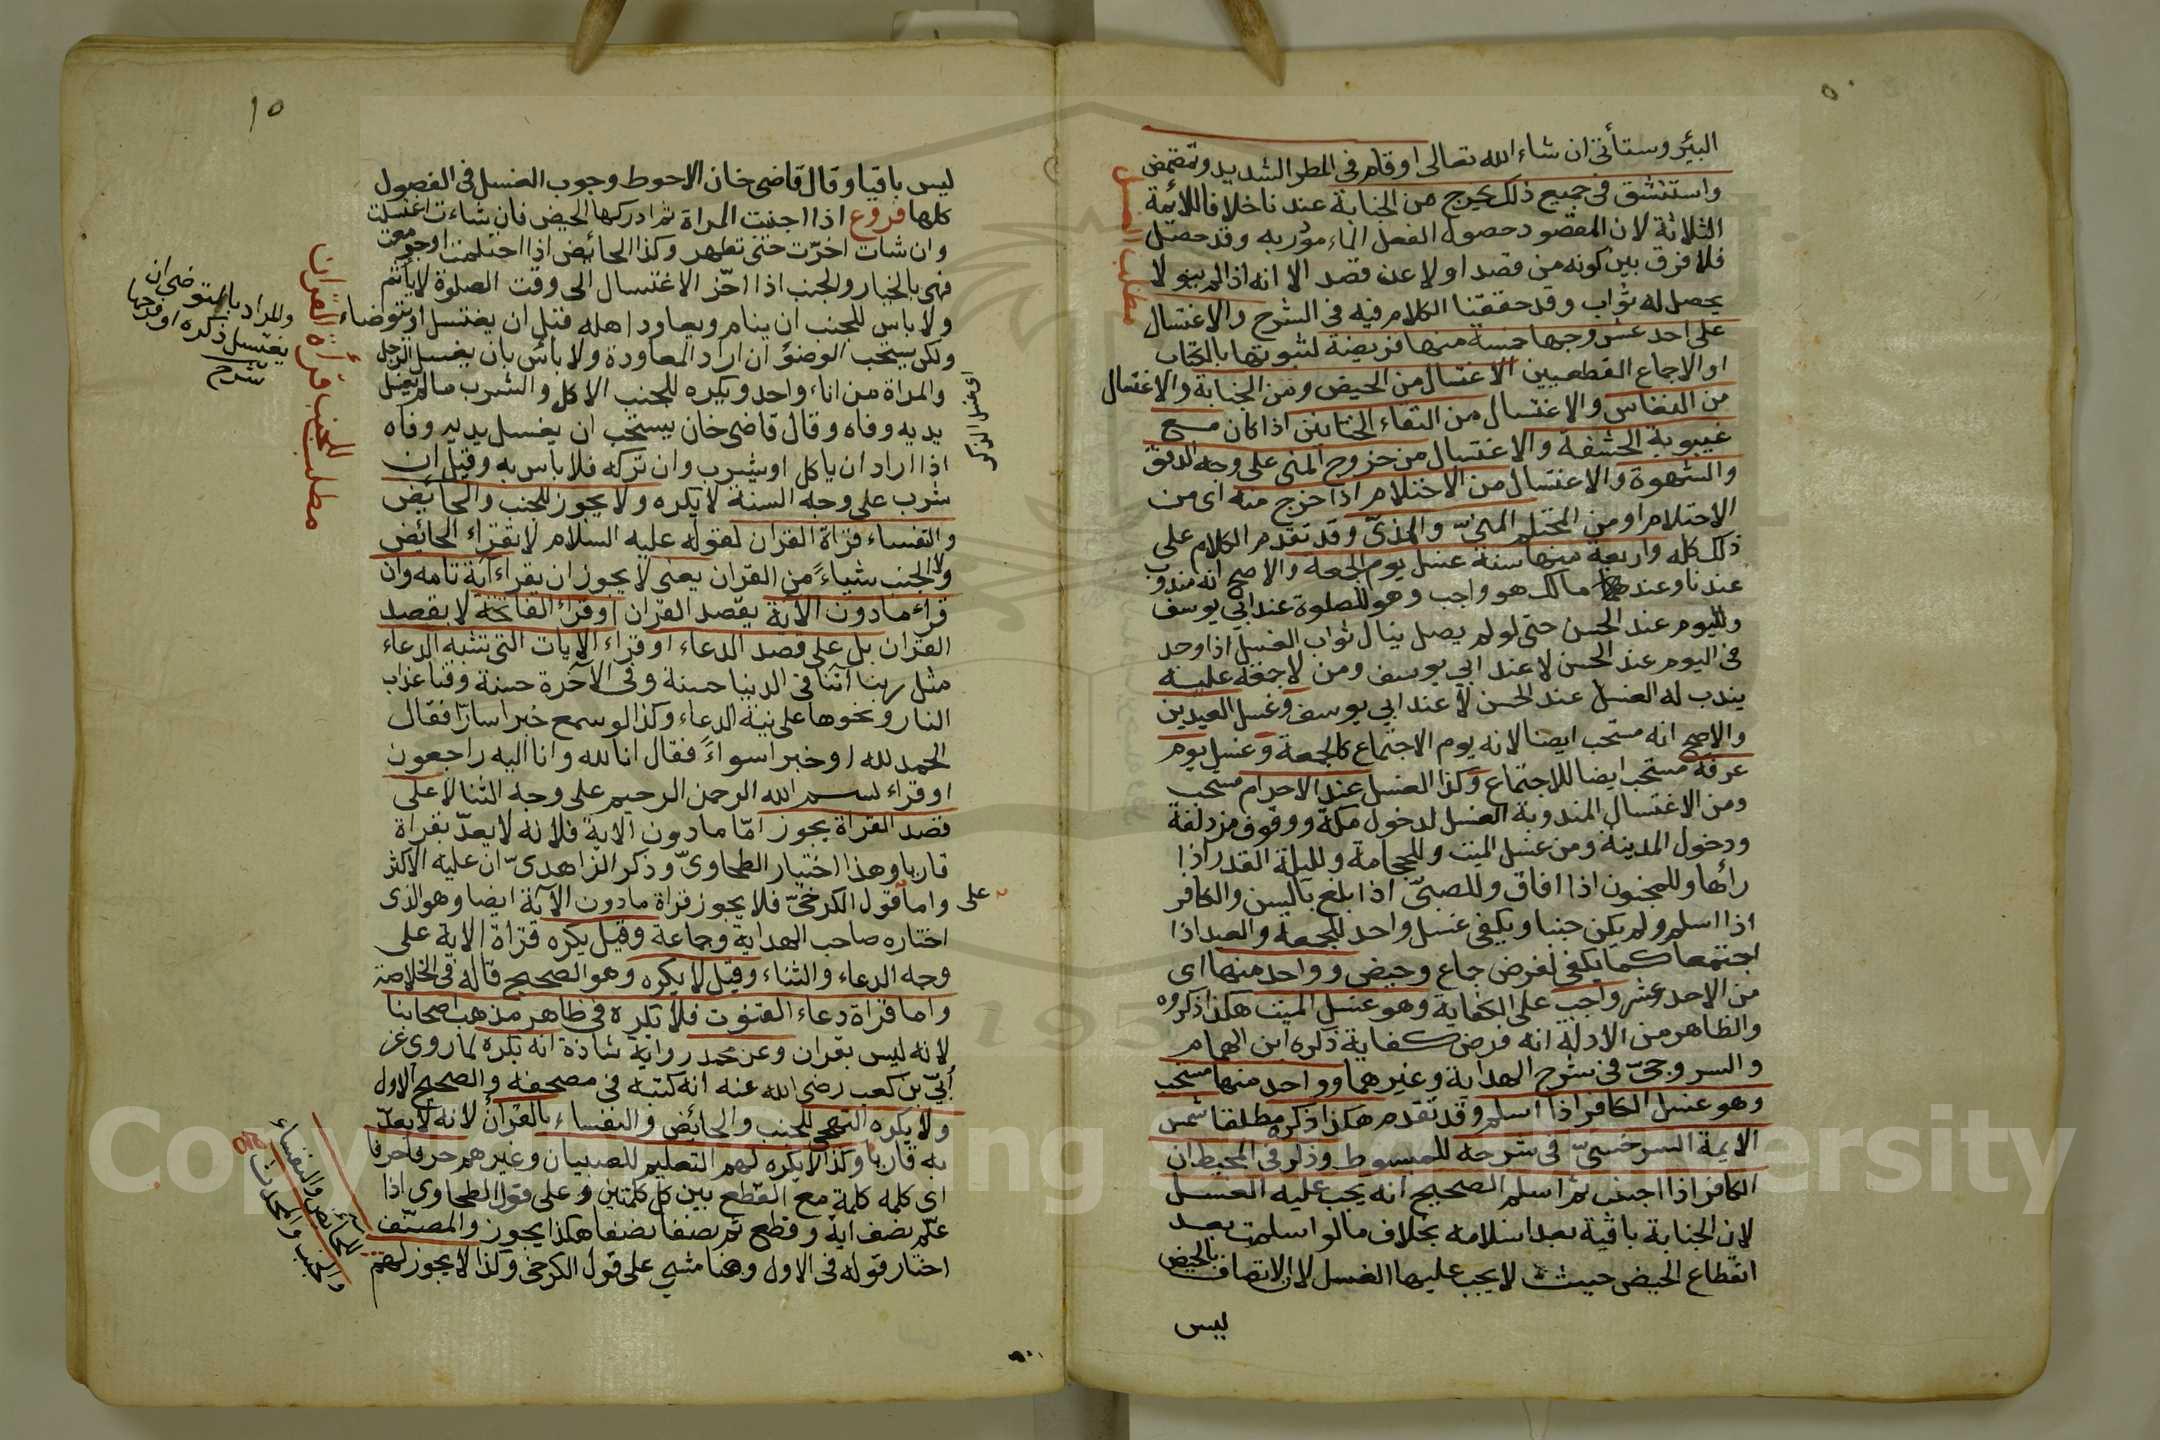 ٥٠
البئر وستأتي ان شاء الله تعالى او قام في المطر الشديد وتمضمض
واستنشق في جميع ذلك يخرج من الجنابة عندنا خلافا للائمة
الثلاثة لان المقصود حصول الفعل الماء مور به وقد حصل
فلا فرق بين كونه من قصد او لا عن قصد الا انه اذا لم ينو لا
يحصل له ثواب وقد حققنا الكلام فيه في الشرح والاغتسال
على احد عشر وجها خمسة منها فريضة لثبوتها بالكتاب
او الاجماع القطعيين الاغتسال من الحيض ومن الجنابة والاغتسال
من النفاس والاغتسال من التقاء الختانين اذا كان مع
غيبوبة الحشفة والاغتسال من خروج المني على وجه الدفق
والشهوة والاغتسال من الاحتلام اذا خرج منه اى من
الاحتلام او من المحتلم المنيّ والمذيّ وقد تقدم الكلام على
ذلك كله واربعة منها سنة غسل يوم الجمعة والاصح انه مندوب
عندنا وعند مالك هو واجب وهو للصلوة عند ابي يوسف
ولليوم عند الحسن حتى لو لم يصل ينال ثواب الغسل اذا وجد
في اليوم عند الحسن لا عند ابي يوسف ومن لا جمعة عليه
يندب له الغسل عند الحسن لا عند ابي يوسف وغسل العيدين
والاصح انه مستحب ايضا لانه يوم الاجتماع كالجمعة وغسل يوم
عرفة مستحب ايضا للاجتماع وكذا الغسل عند الاحرام مستحب
ومن الاغتسال المندوبة الغسل لدخول مكة ووقوف مزدلفة
ودخول المدينة ومن غسل الميت وللحجامة ولليلة القدر اذا
رائها وللمجنون اذا افاق وللصبيّ اذا بلغ بالسن والكافر
اذا اسلم ولم يكن جنبا ويكفى غسل واحد للجمعة والعيد اذا
اجتمعا كما يكفى لفرض جماع وحيض وواحد منها اى
من الاحد عشر واجب على الكفاية وهو غسل الميت هكذا ذكروه
والظاهر من الادلة انه فرض كفاية ذكره ابن الهمام
والسروجيّ في شرح الهداية وغيرهما وواحد منها مستحب
وهو غسل الكافر اذا اسلم وقد تقدم هكذا ذكره مطلقا شمس
الايمة السرخسيّ في شرحه للمبسوط وذكر في المحيط ان
الكافر اذا اجنب ثم اسلم الصحيح انه يجب عليه الغسل
لان الجنابة باقية بعد اسلامه بخلاف ما لو اسلمت بعد
انقطاع الحيض حيث لا يجب عليها الغسل لان الاتصاف بالحيض
ليس
مطلب الغسل
٥١
ليس باقيا وقال قاضى خان الاحوط وجوب الغسل في الفصول
كلها فروع اذا اجنبت المراة ثم ادركها الحيض فان شاءت اغتسلت
وان شات اخرّت حتى تطهر وكذا الحائض اذا احتلمت او جومعت
فهى بالخيار والجنب اذا اخّر الاغتسال الى وقت الصلوة لا ياثم
ولا باس للجنب ان ينام ويعاود اهله قبل ان يغتسل او يتوضاء
ولكن يستحب الوضوء ان اراد المعاودة ولا بأس بان يغتسل الرجل
والمراة من اناء واحد ويكره للجنب الاكل والشرب ما لم يغسل
يديه وفاه وقال قاضى خان يستحب ان يغسل يديه وفاه
اذا اراد ان ياكل او يشرب وان تركه فلا باس به وقيل ان
شرب على وجه السنة لا يكره ولا يجوز للجنب والحائض
والنفساء قراة القران لقوله عليه السلام لا يقراء الحائض
ولا الجنب شياءً من القران يعنى لا يجوز ان يقراء آية تامه وان
قراء ما دون الآية بقصد القران او قراء الفاتحة لا بقصد
القران بل على قصد الدعاء او قراء الايات التى تشبه الدعاء
مثل ربنا آتنا في الدنيا حسنة وفى الآخرة حسنة وقنا عذاب
النار ونحوها على نية الدعاء وكذا لو سمع خبرا سارّا فقال
الحمد لله او خبرا سواءً فقال انا لله وانا اليه راجعون
او قراء بسم الله الرحمن الرحيم على وجه الثنا لا على
قصد القراة يجوز امّا ما دون الاية فلانه لا يعدّ بقراة
قاريا وهذا اختيار الطحاويّ وذكر الزاهديّ ان عليه الاكثر
واما قول الكرخيّ فلا يجوز قراة ما دون الآية ايضا وهو الذى
اختاره صاحب الهداية وجماعة وقيل يكره قراة الاية على
وجه الدعاء والثناء وقيل لا يكره وهو الصحيح قاله في الخلاصة
واما قراة دعاء القنوت فلا تكره في ظاهر مذهب اصحابنا
لانه ليس بقران وعن محمد رواية شاذة انه يكره لما روى عن
أبيّ بن كعب رضى الله عنه انه كتبه في مصحفه والصحيح الاول
ولا يكره التهجي للجنب والحائض والنفساء بالقران لانه لا يعدّ
به قاريا وكذا لا يكره لهم التعليم للصبيان وغيرهم حرفا حرفا
اى كلمه كلمة مع القطع بين كل كلمتين وعلى قول الطحاوى اذا
علّم نصف اية وقطع ثم نصفا نصفا هكذا يجوز والمصنّف
اختار قوله في الاول وهنا مشى على قول الكرخى وكذا لا يجوز لهم
او غسل الذكر
على
والمراد بالتوضى ان
يغتسل ذكره او فرجها
شرح
مطلب للجنب قرأة القران
للحائض والنفساء
والجنب والمحدث